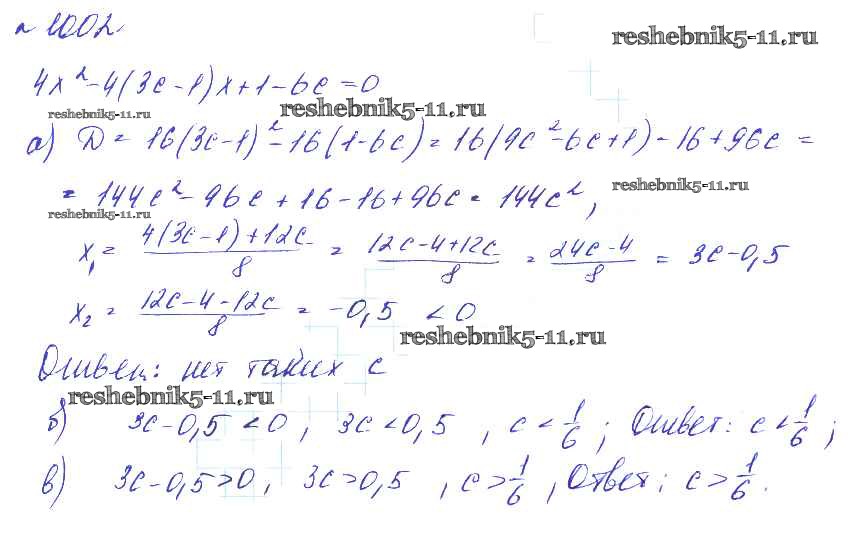 n 1002.
reshebnik5-11.ru
4x² - 4(3c-1)x + 1 - 6c = 0
reshebnik5-11.ru reshebnik5-11.ru
а) D = 16(3c-1)² - 16(1-6c) = 16(9c² - 6c + 1) - 16 + 96c =
= 144c² - 96c + 16 - 16 + 96c = 144c²,
reshebnik5-11.ru
reshebnik5-11.ru
x₁ = (4(3c-1)+12c)/8 = (12c-4+12c)/8 = (24c-4)/8 = 3c-0,5
x₂ = (12c-4-12c)/8 = -0,5 < 0
reshebnik5-11.ru
Ответ: нет таких c
reshebnik5-11.ru
б) 3c-0,5 < 0, 3c < 0,5, c < 1/6; Ответ: c < 1/6;
в) 3c-0,5 > 0, 3c > 0,5, c > 1/6, Ответ: c > 1/6.